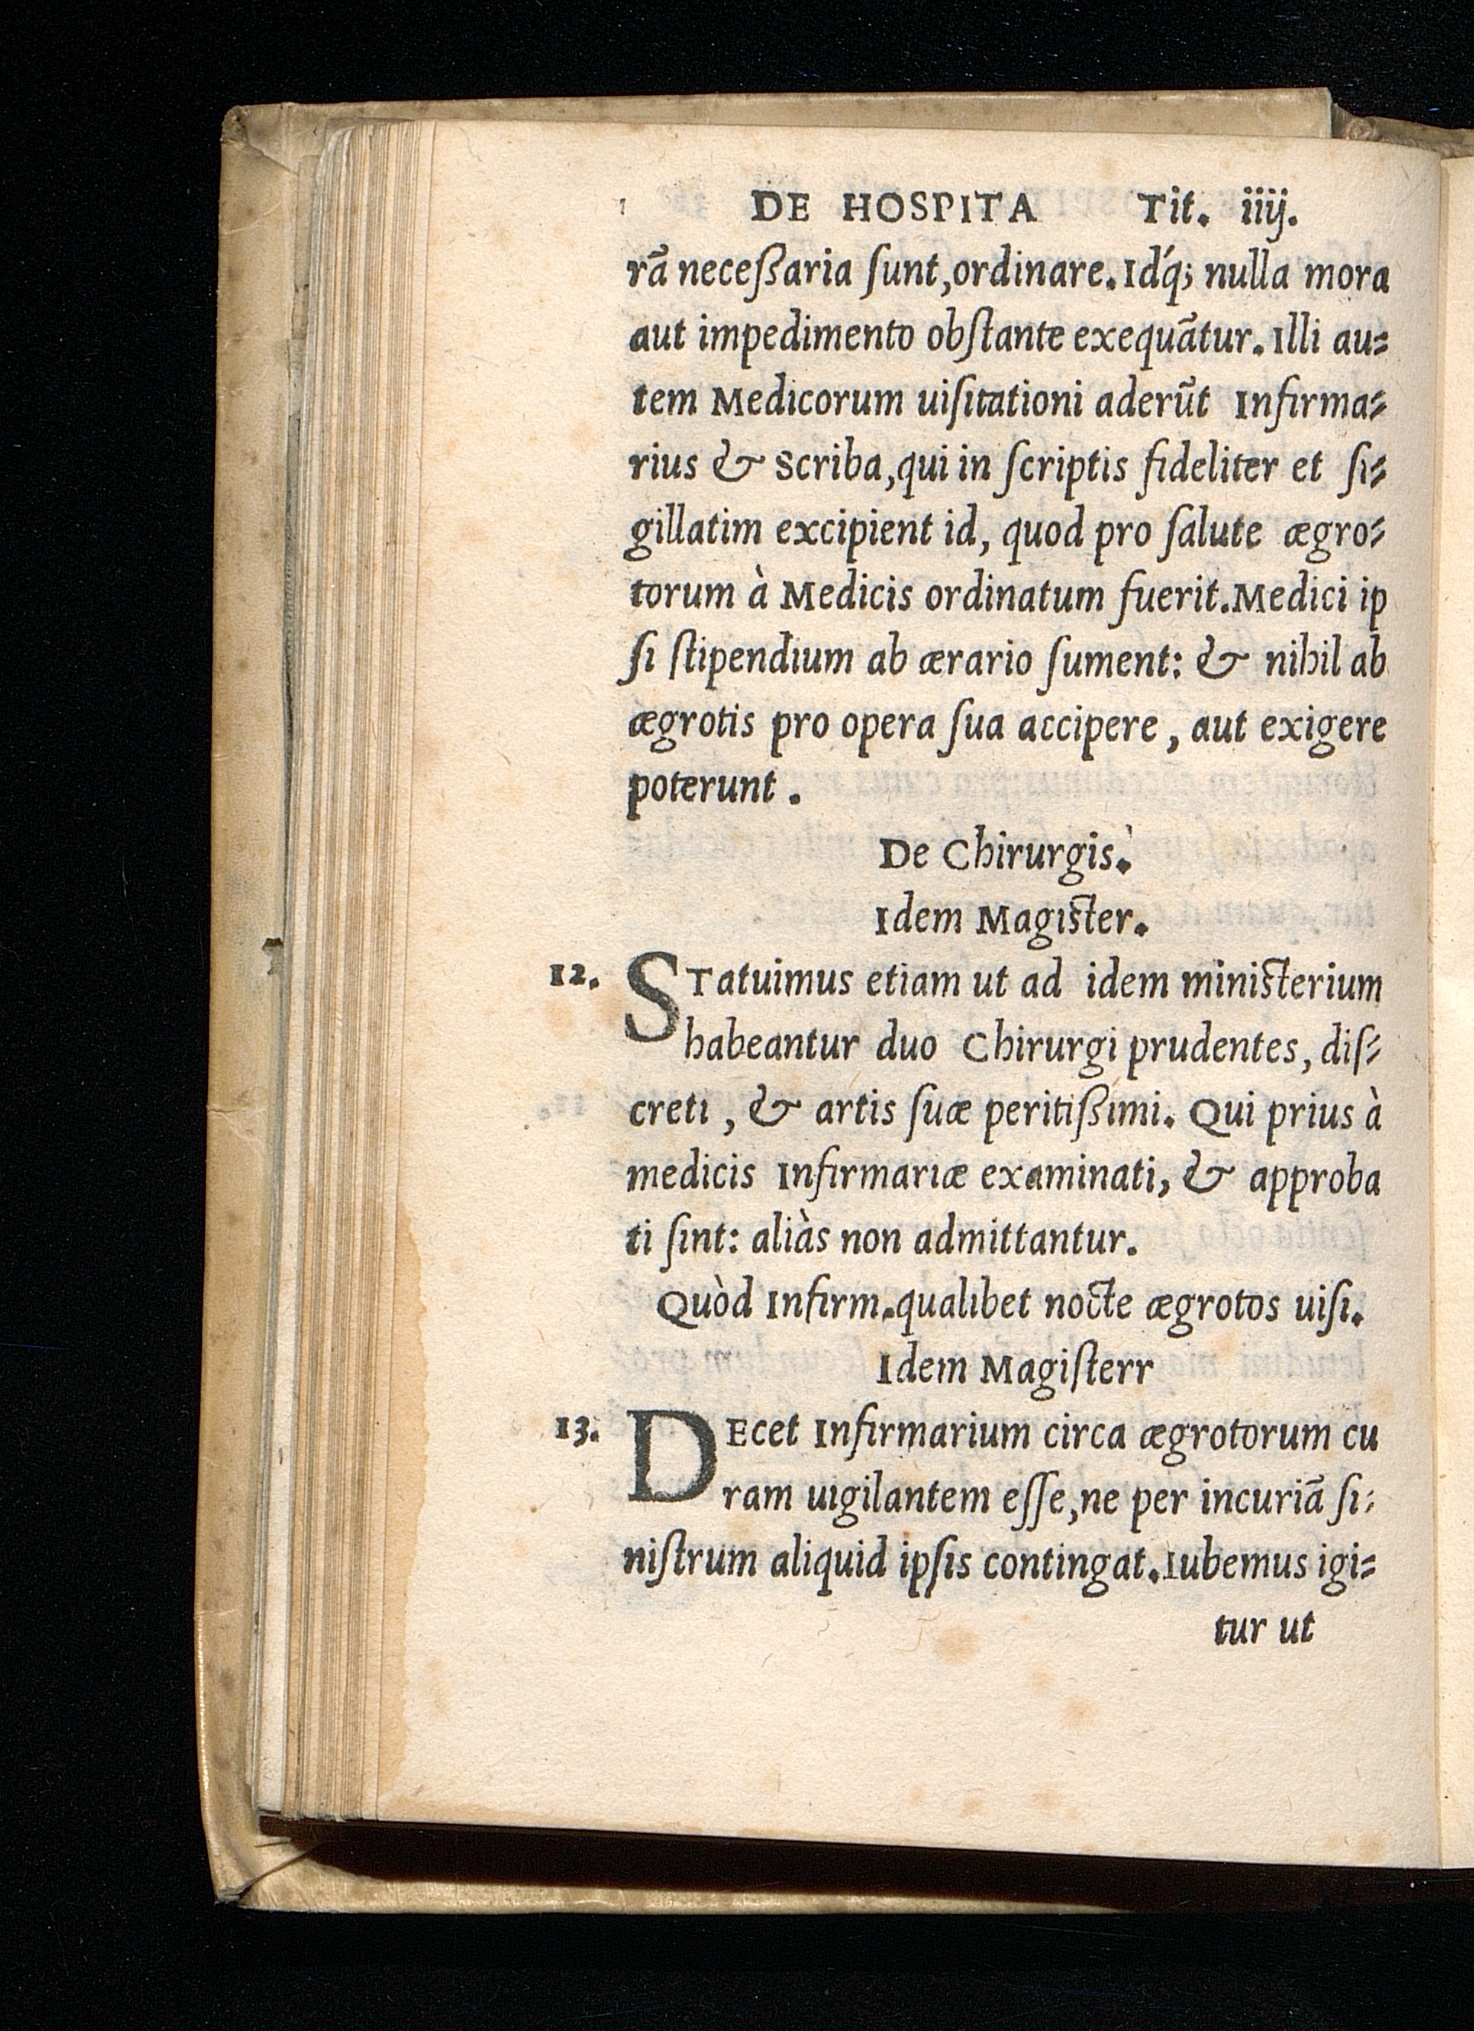 DE HOSPITA Tit. iiij.
rã neceßaria ſunt,ordinare.Idq́; nulla mora
aut impedimento obſtante exequãtur.Illi au⸗
tem Medicorum uiſitationi aderũt Infirma⸗
rius & Scriba,qui in ſcriptis fideliter et ſi⸗
gillatim excipient id, quod pro ſalute ægro⸗
torum à Medicis ordinatum fuerit.Medici ip
ſi ſtipendium ab ærario ſument: & nihil ab
ægrotis pro opera ſua accipere, aut exigere
poterunt.
De Chirurgis.
Idem Magister.
12. STatuimus etiam ut ad idem ministerium
habeantur duo Chirurgi prudentes, diſ⸗
creti, & artis ſuæ peritißimi. Qui prius à
medicis Infirmariæ examinati, & approba
ti ſint: aliàs non admittantur.
Quòd Infirm.qualibet nocte ægrotos uiſi.
Idem Magiſterr
13. DEcet Infirmarium circa ægrotorum cu
ram uigilantem eſſe,ne per incuriã ſi⸗
niſtrum aliquid ipſis contingat.Iubemus igi⸗
tur ut